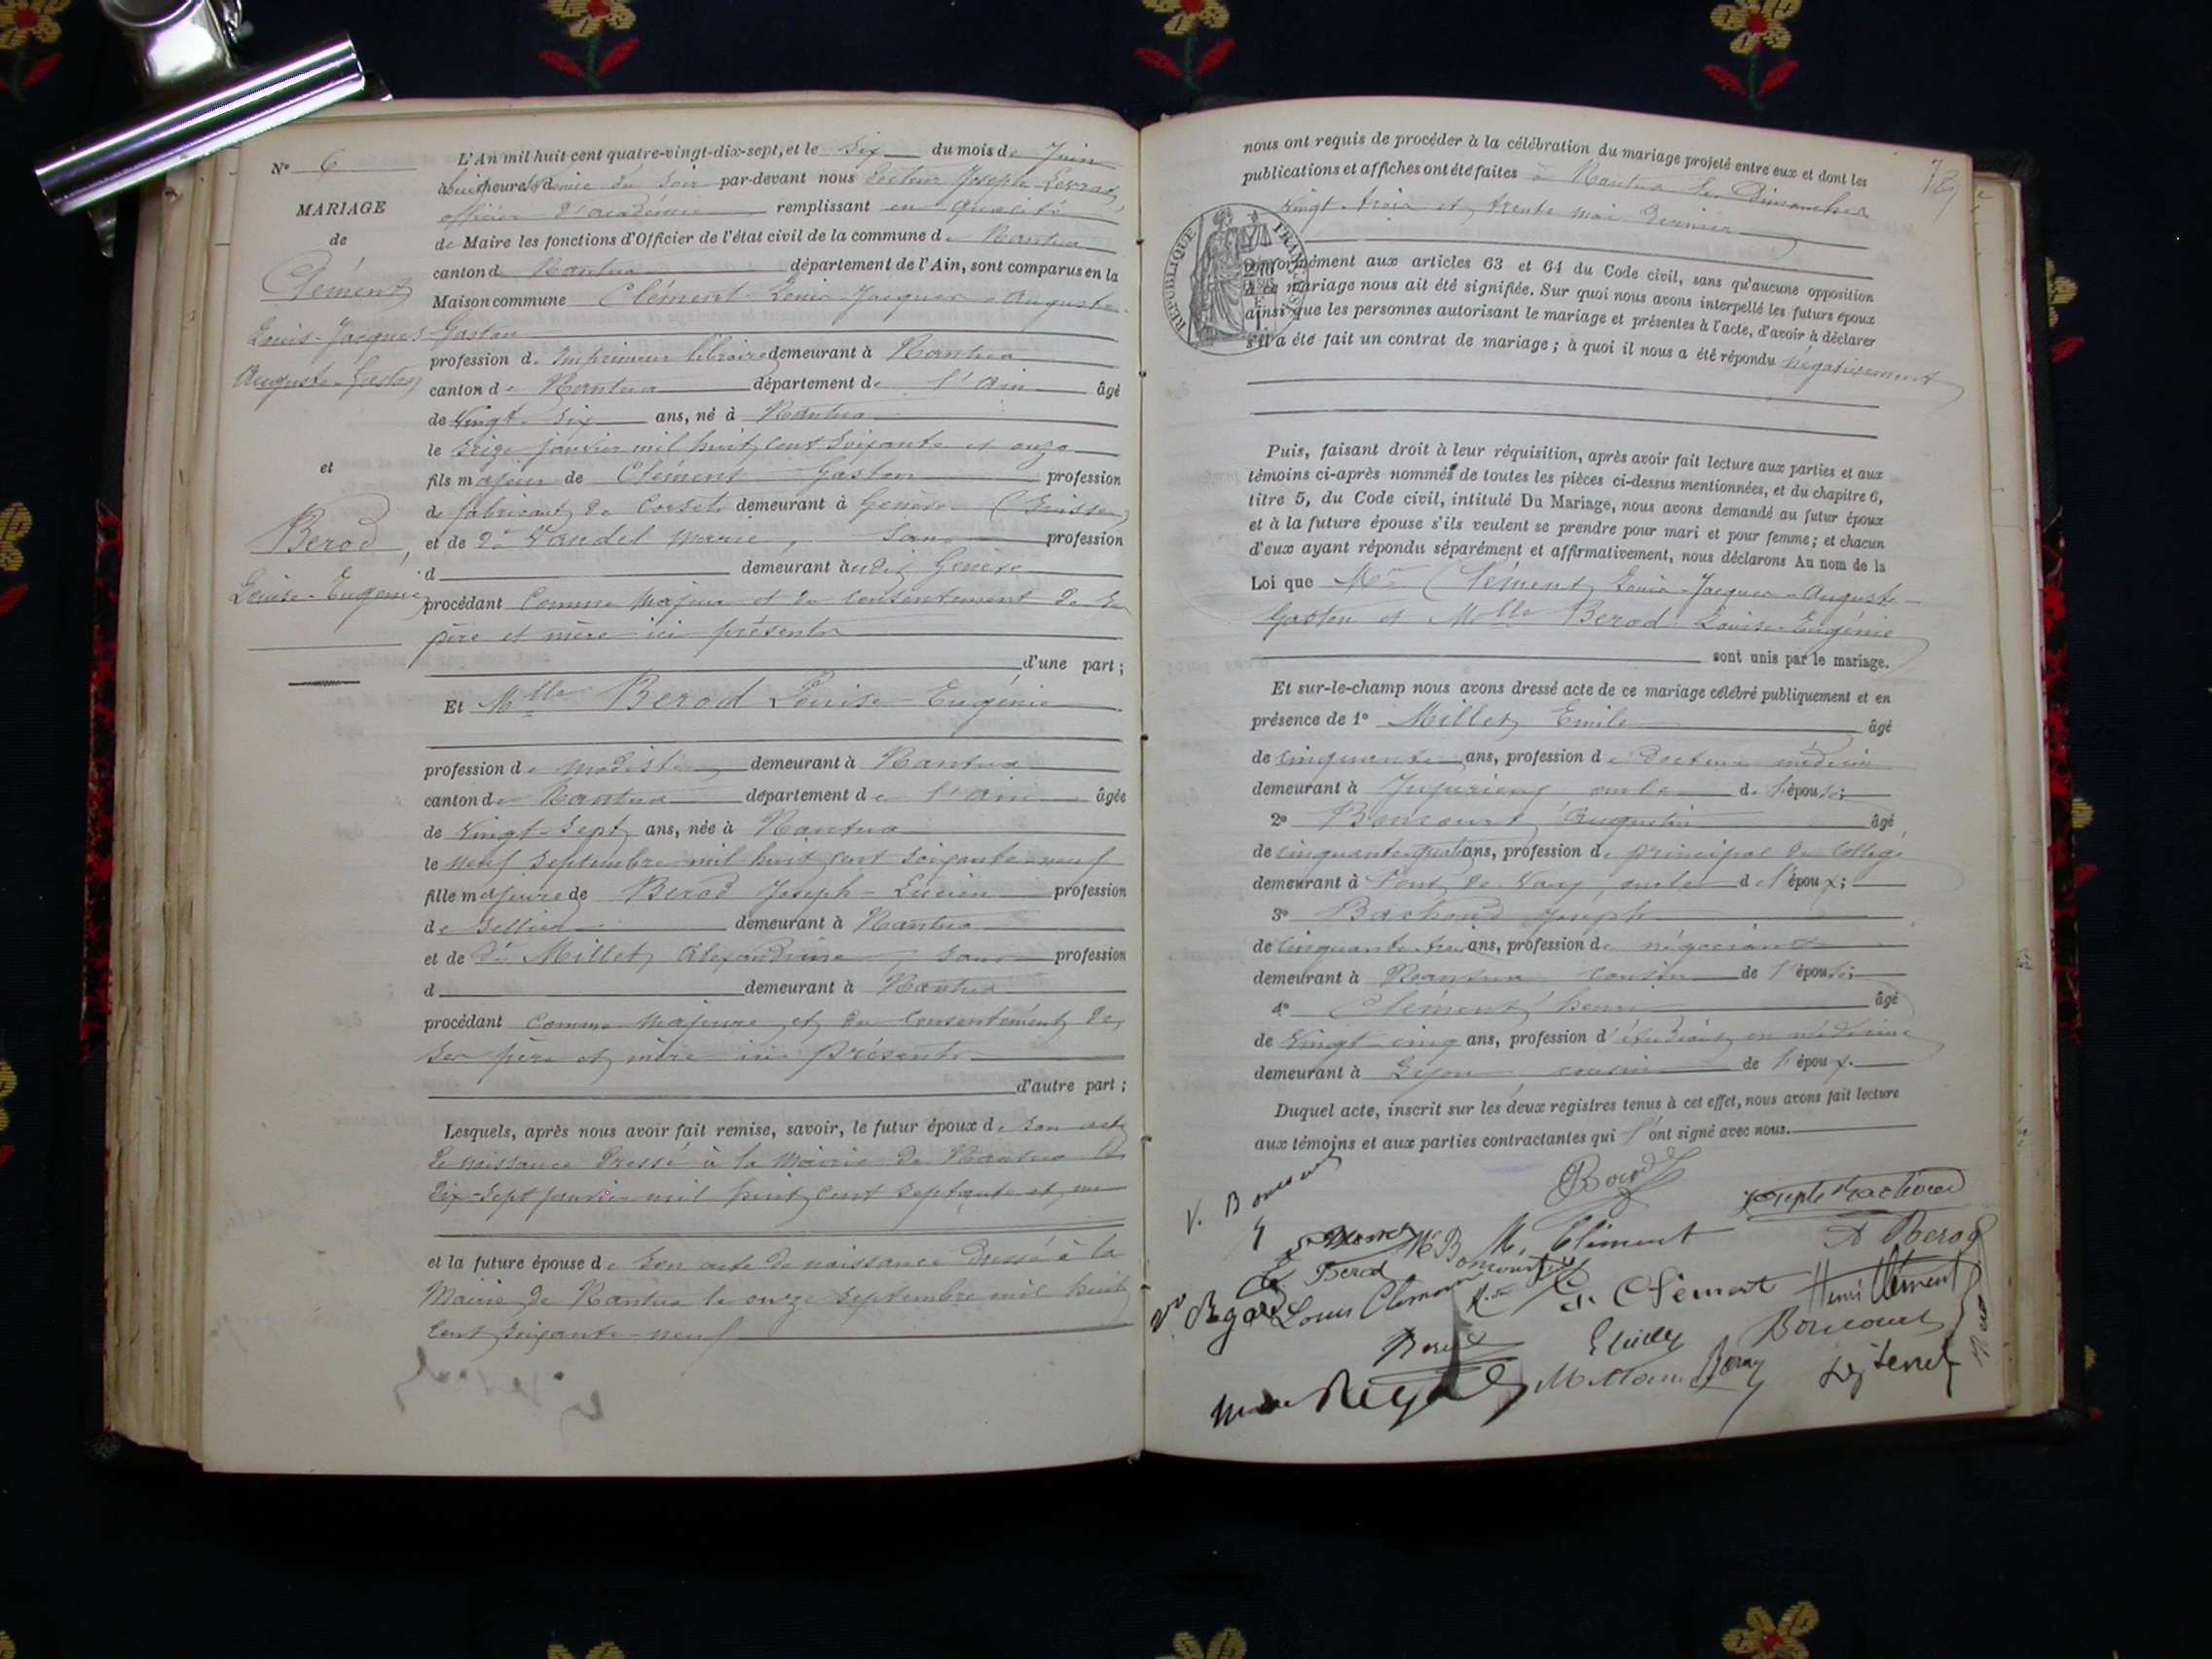 N° 6
MARIAGE
de
Clément
Louis-Jacques
Auguste-Gaston
et
Berod,
Louise-Eugénie
L'An mil huit cent quatre-vingt-dix-sept, et le six du mois de Juin
à huit heures et demie du soir par-devant nous Docteur Joseph
officier d'académie remplissant en qualité
de Maire les fonctions d'Officier de l'état civil de la commune de Nantua
canton de Nantua département de l'Ain, sont comparus en la
Maison commune Clément Louis-Jacques-Auguste-
Gaston
profession d'imprimeur libraire demeurant à Nantua
canton de Nantua département de l'Ain âgé
de vingt-six ans, né à Nantua
le seize janvier mil huit cent soixante et onze
fils majeur de Clément Gaston profession
de fabricant de corsets demeurant à Genève (Suisse)
et de de Vaudel Marie, sans profession
d demeurant audit Genève
procédant comme majeur et du consentement de ses
père et mère ici présents
d'une part ;
Et Mlle Berod Louise-Eugénie
profession de modiste demeurant à Nantua
canton de Nantua département de l'Ain âgée
de vingt-sept ans, née à Nantua
le neuf septembre mil huit cent soixante-neuf
fille majeure de Berod Joseph-Lucien profession
de sellier demeurant à Nantua
et de de Millet Alexandrine, sans profession
d demeurant à Nantua
procédant comme majeure et du consentement de
ses père et mère ici présents
d'autre part ;
Lesquels, après nous avoir fait remise, savoir, le futur époux de son acte
de naissance dressé à la Mairie de Nantua le
dix-sept janvier mil huit cent septante et un
et la future épouse de son acte de naissance dressé à la
Mairie de Nantua le onze septembre mil huit
cent soixante-neuf
78
nous ont requis de procéder à la célébration du mariage projeté entre eux et dont les
publications et affiches ont été faites à Nantua les Dimanches
vingt-trois et trente mai dernier
RÉPUBLIQUE FRANÇAISE
conformément aux articles 63 et 64 du Code civil, sans qu'aucune opposition
à ce mariage nous ait été signifiée. Sur quoi nous avons interpellé les futurs époux
ainsi que les personnes autorisant le mariage et présentes à l'acte, d'avoir à déclarer
s'il a été fait un contrat de mariage ; à quoi il nous a été répondu négativement
Puis, faisant droit à leur réquisition, après avoir fait lecture aux parties et aux
témoins ci-après nommés de toutes les pièces ci-dessus mentionnées, et du chapitre 6,
titre 5, du Code civil, intitulé Du Mariage, nous avons demandé au futur époux
et à la future épouse s'ils veulent se prendre pour mari et pour femme ; et chacun
d'eux ayant répondu séparément et affirmativement, nous déclarons Au nom de la
Loi que Mr Clément Louis-Jacques-Auguste-
Gaston et Melle Berod Louise-Eugénie
sont unis par le mariage.
Et sur-le-champ nous avons dressé acte de ce mariage célébré publiquement et en
présence de 1° Millet Emile âgé
de cinquante ans, profession de Docteur médecin
demeurant à Jujurieux oncle de l'épouse ;
2° Boncourt Augustin âgé
de cinquante-quatre ans, profession de principal de Collège
demeurant à Pont de Vaux, oncle de l'époux ;
3° Bachoud Joseph
de cinquante-trois ans, profession de négociant
demeurant à Nantua cousin de l'épouse ;
4° Clément henri âgé
de vingt-cinq ans, profession d'étudiant en médecine
demeurant à Lyon cousin de l'époux.
Duquel acte, inscrit sur les deux registres tenus à cet effet, nous avons fait lecture
aux témoins et aux parties contractantes qui l'ont signé avec nous.
V. Boncourt
Berod
Joseph Bachoud
M. Clément
A Berod
Boncourt
Berod
Louis Clément
Clément
Henri Clément
Boncourt